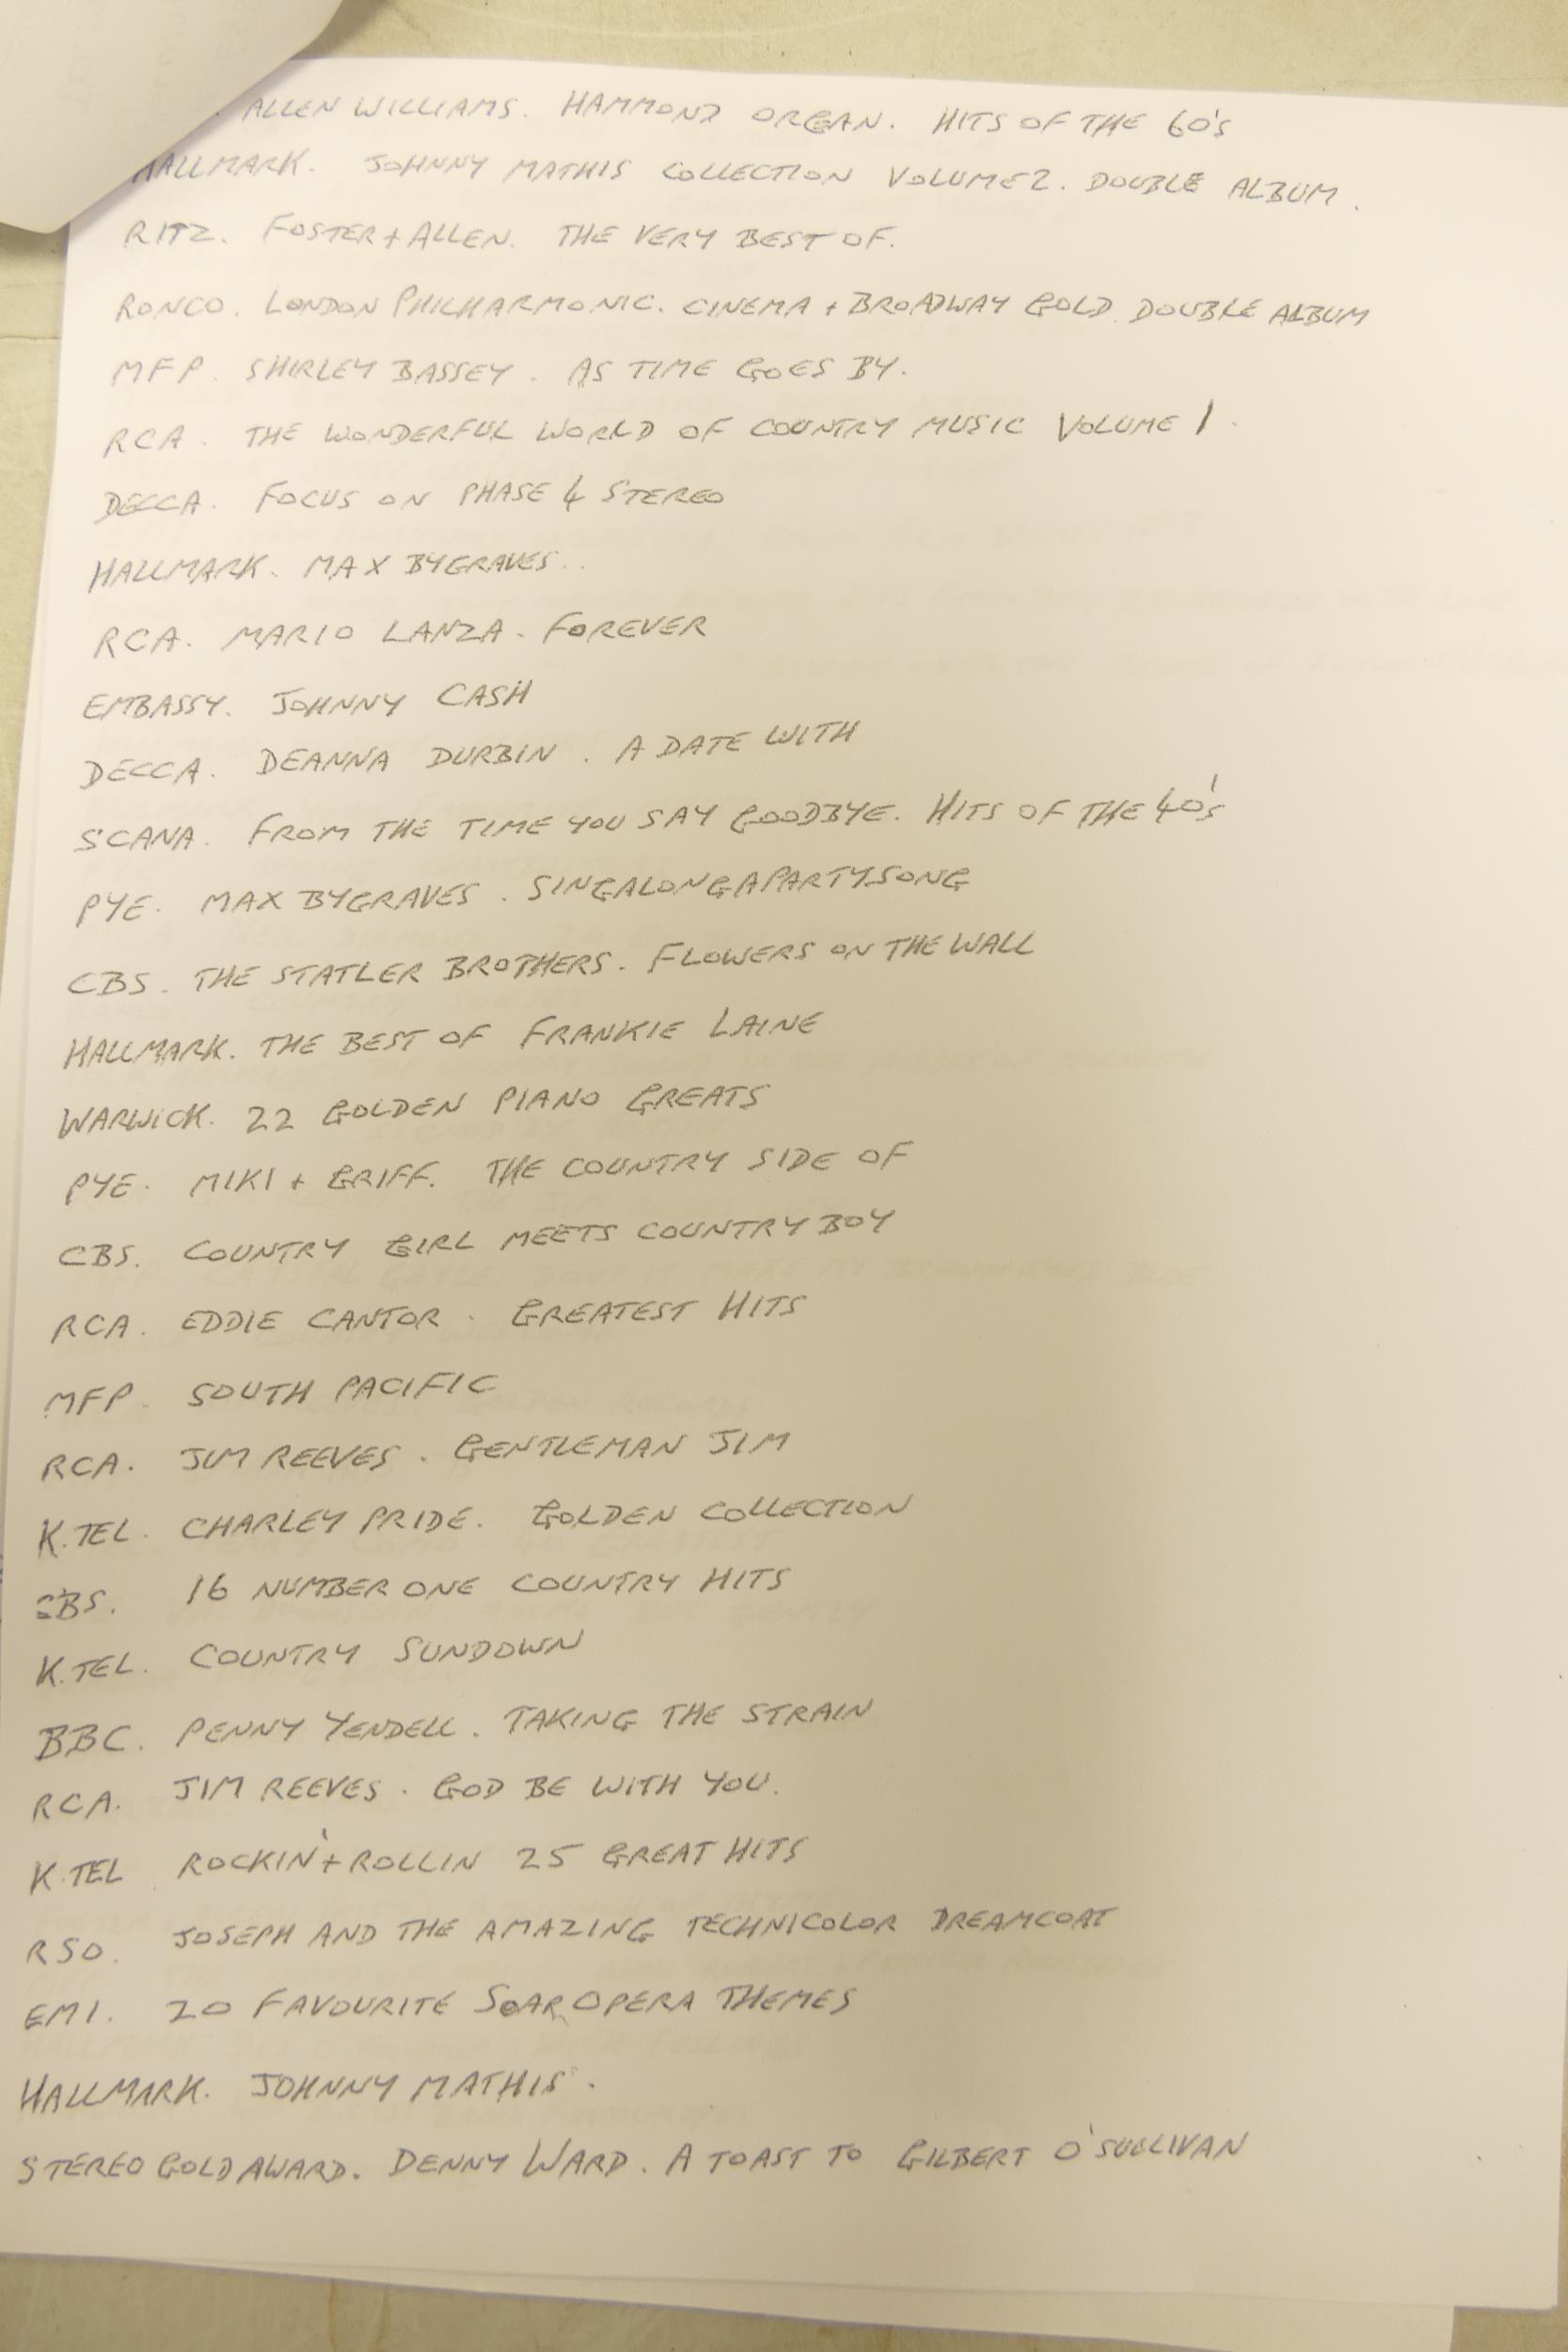 . ALLEN WILLIAMS. HAMMOND ORGAN. HITS OF THE 60'S
HALLMARK. JOHNNY MATHIS COLLECTION VOLUME 2. DOUBLE ALBUM.
RITZ. FOSTER + ALLEN. THE VERY BEST OF.
RONCO. LONDON PHILHARMONIC. CINEMA + BROADWAY GOLD. DOUBLE ALBUM
MFP. SHIRLEY BASSEY. AS TIME GOES BY.
RCA. THE WONDERFUL WORLD OF COUNTRY MUSIC VOLUME 1.
DECCA. FOCUS ON PHASE 4 STEREO
HALLMARK. MAX BYGRAVES..
RCA. MARIO LANZA. FOREVER
EMBASSY. JOHNNY CASH
DECCA. DEANNA DURBIN. A DATE WITH
SCANA. FROM THE TIME YOU SAY GOODBYE. HITS OF THE 40's
PYE. MAX BYGRAVES. SINGALONGAPARTYSONG
CBS. THE STATLER BROTHERS. FLOWERS ON THE WALL
HALLMARK. THE BEST OF FRANKIE LAINE
WARWICK. 22 GOLDEN PIANO GREATS
PYE. MIKI + GRIFF. THE COUNTRY SIDE OF
CBS. COUNTRY GIRL MEETS COUNTRY BOY
RCA. EDDIE CANTOR. GREATEST HITS
MFP. SOUTH PACIFIC
RCA. JIM REEVES. GENTLEMAN JIM
K.TEL. CHARLEY PRIDE. GOLDEN COLLECTION
CBS. 16 NUMBER ONE COUNTRY HITS
K.TEL. COUNTRY SUNDOWN
BBC. PENNY YENDELL. TAKING THE STRAIN
RCA. JIM REEVES. GOD BE WITH YOU.
K.TEL ROCKIN' + ROLLIN 25 GREAT HITS
RSO. JOSEPH AND THE AMAZING TECHNICOLOR DREAMCOAT
EMI. 20 FAVOURITE SOAP OPERA THEMES
HALLMARK. JOHNNY MATHIS.
STEREO GOLD AWARD. DENNY WARD. A TOAST TO GILBERT O'SULLIVAN